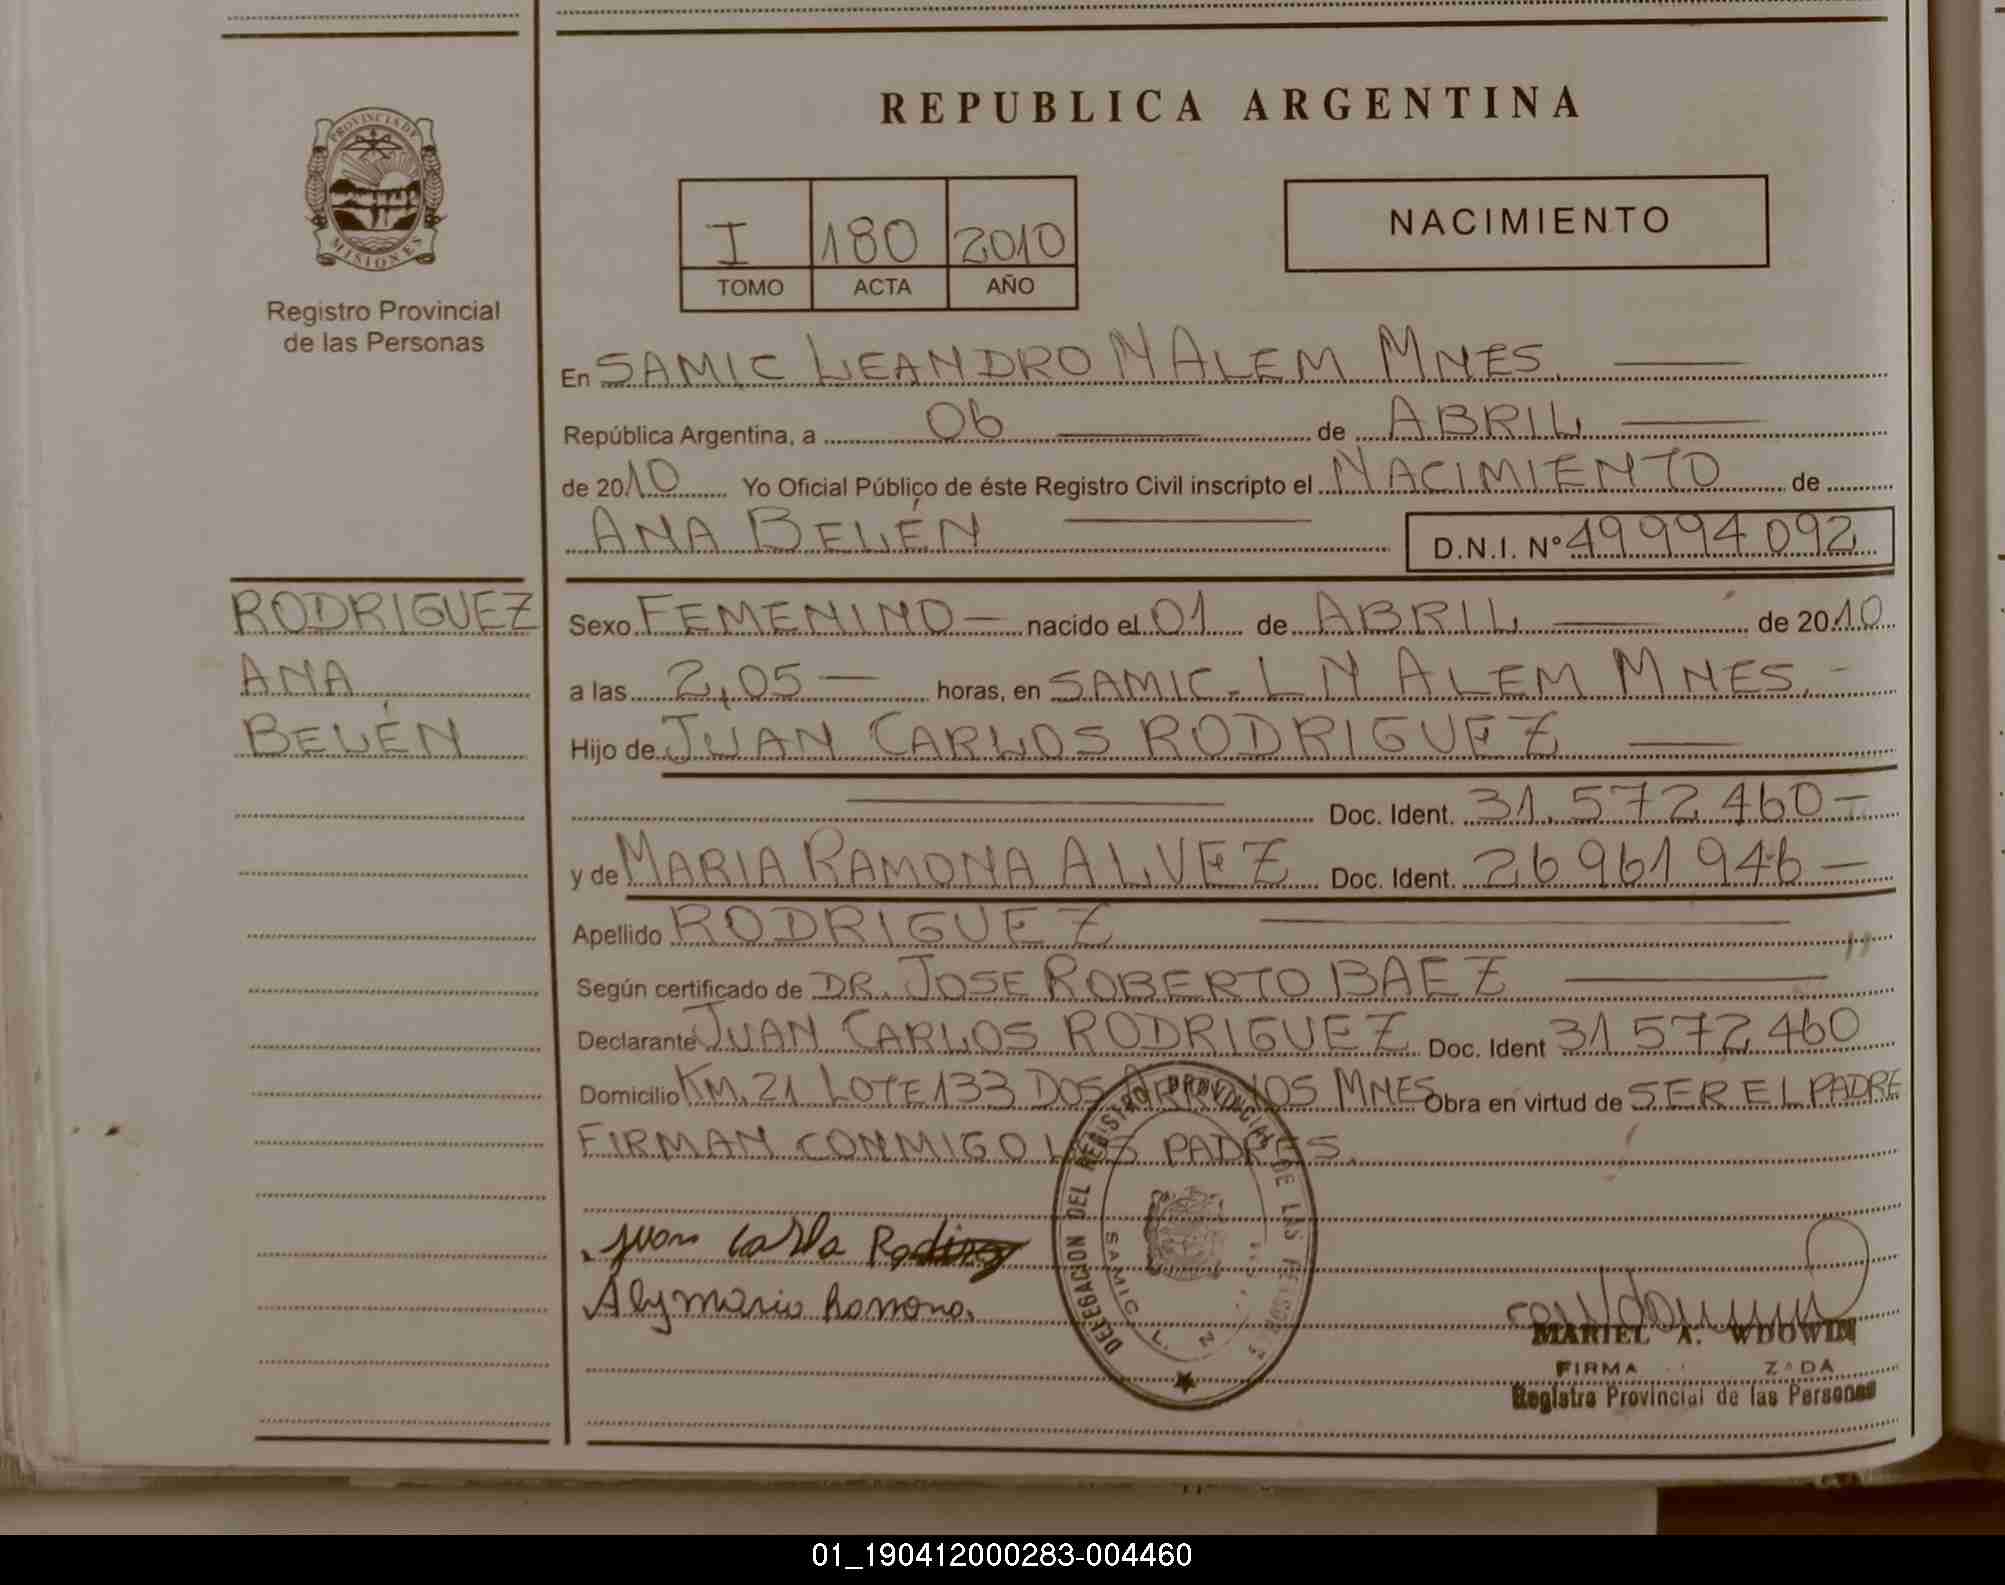 REPUBLICA ARGENTINA
PROVINCIA DE
MISIONES
Registro Provincial
de las Personas
I 180 2010
TOMO ACTA AÑO
NACIMIENTO
En SAMIC LEANDRO N ALEM MNES.
República Argentina, a 06 de ABRIL
de 2010 Yo Oficial Público de éste Registro Civil inscripto el NACIMIENTO de
ANA BELÉN D.N.I. Nº 49994092
RODRIGUEZ
ANA
BELÉN
Sexo FEMENINO nacido el 01 de ABRIL de 2010
a las 2,05 horas, en SAMIC. L N ALEM MNES.
Hijo de JUAN CARLOS RODRIGUEZ
Doc. Ident. 31.572.460
y de MARIA RAMONA ALVEZ Doc. Ident. 26961946
Apellido RODRIGUEZ
Según certificado de DR. JOSE ROBERTO BAEZ
Declarante JUAN CARLOS RODRIGUEZ Doc. Ident 31 572 460
Domicilio KM. 21 LOTE 133 DOS ARROYOS MNES Obra en virtud de SER EL PADRE
FIRMAN CONMIGO LOS PADRES.
DELEGACION DEL REGISTRO PROVINCIAL DE LAS
SAMIC L. N.
Juan Carlo
Maria Ramona.
MARIEL A. WDOWIN
FIRMA
Registro Provincial de las Personas
01_190412000283-004460